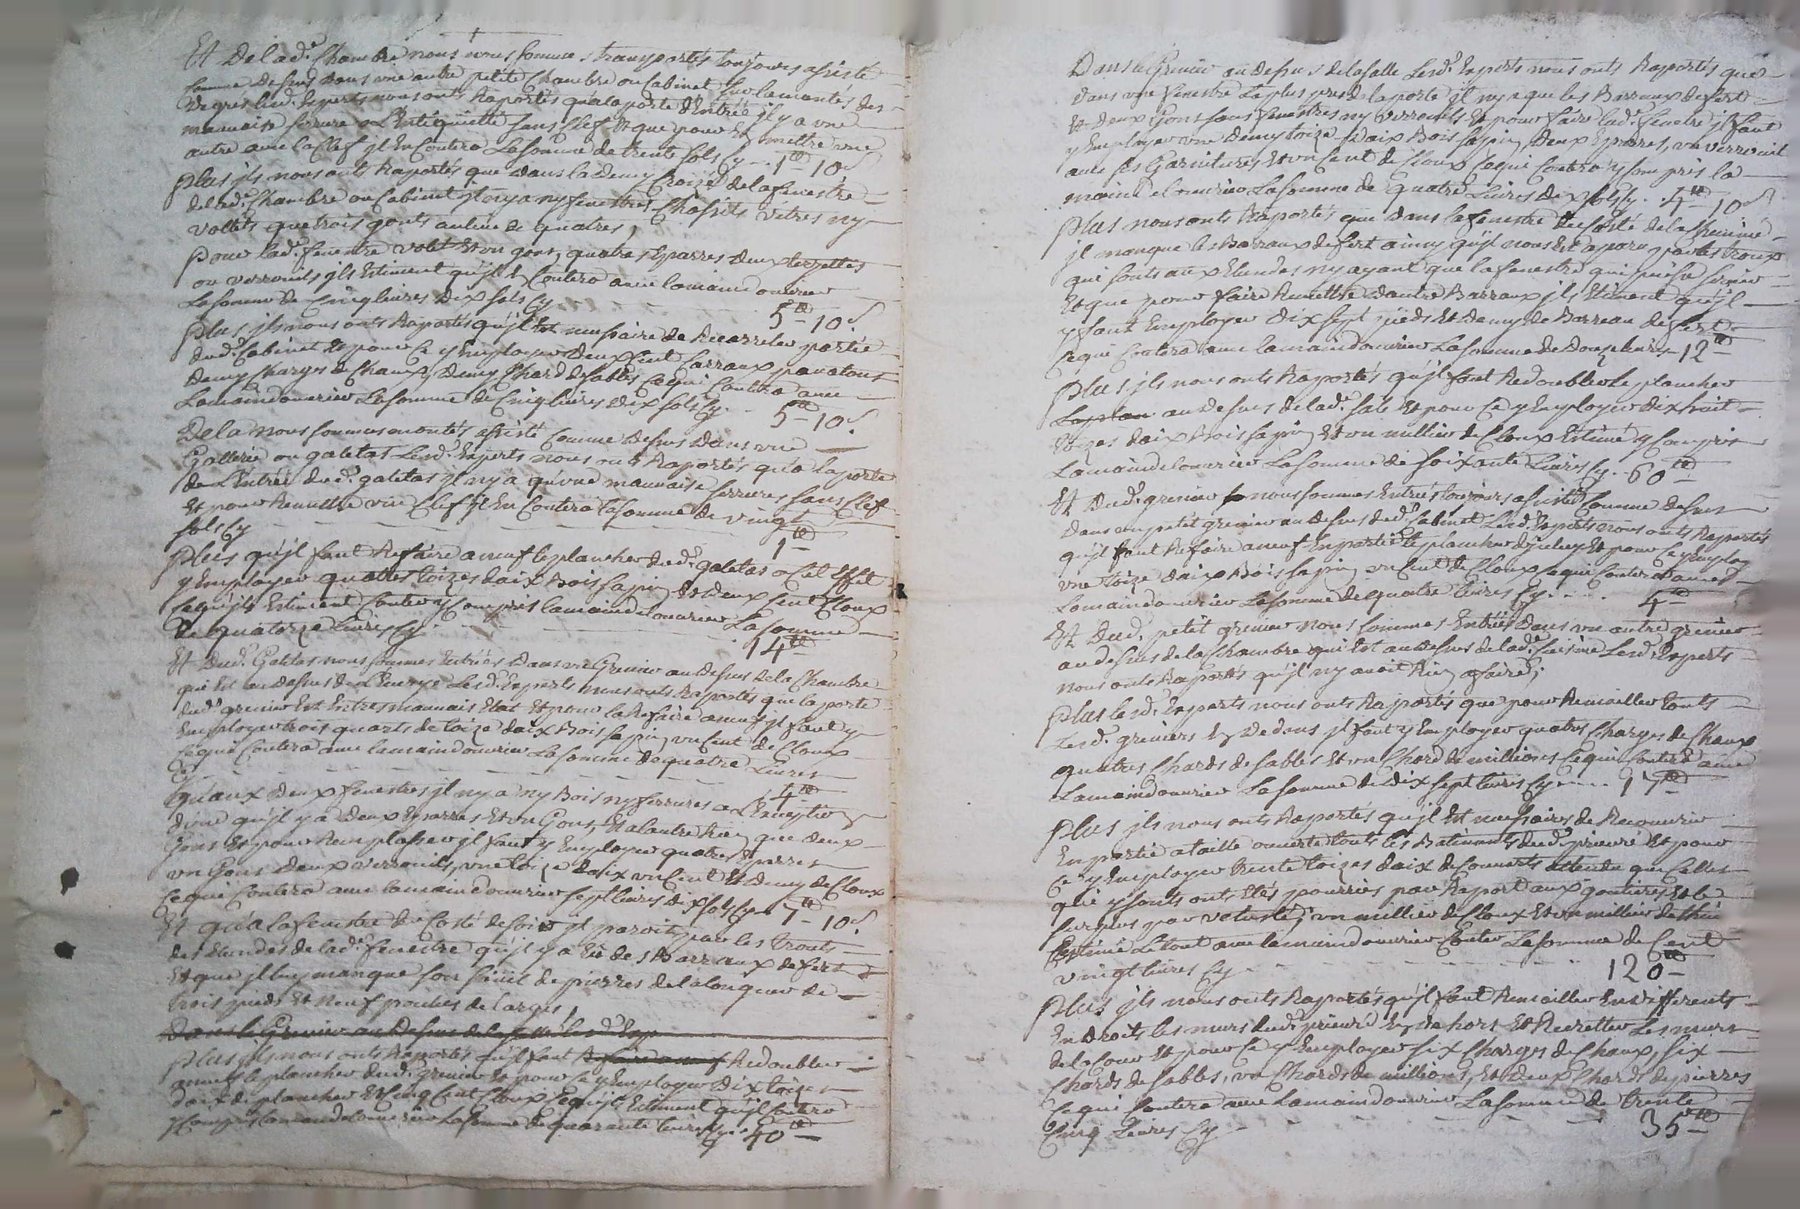 Et De lad.e Chambre nous nous sommes transportés toujours assisté
comme dessus dans une autre petite Chambre ou Cabinet sur la montés des
Degres lesd. Experts nous onts Raportés qu'a la porte d'Entréé il y a une
mauvaise serrure a L'antiquitté sans Clef et que pour Et mettre une
autre avec la Clef jl En Coutera La somme de trente sols Cy - 1tt 10 s
Plus jls nous onts Raportés que Dans la Demy Croizé de la fenestre
de lad.e Chambre ou Cabinet jl ny a ny fenestres Chassits Vitres ny
Vollets que trois gonts aulieu de quatres,
Pour lad.e fenestre volet Et un gont, quatres Eparres deux targettes
ou verrouils jls Estiment qu'jl Et Coutera avec la main douvrier
La somme de Cinq livres Dix sols Cy 5tt 10 s
Plus jls nous onts Raportés qu'jl Est necessaire de Recarreler partie
dud. Cabinet Et pour Ce y Employer Deux Cent Carraux
Demy Charges de Chaux, Demy Chard de sables Ce qui Coutera avec
La main douvrier La somme de Cinq livres Dix sols Cy 5tt 10 s
De la nous sommes montés assisté Comme Dessus Dans une
Gallerie ou galetas Lesd. Experts nous onts Raportés qu'a la porte
de L'Entréé dud. galetas jl ny a qu'une mauvaise serrures sans Clef
Et pour Remettre une Clef jl En Coutera La somme de vingt
sols Cy 1tt
Plus qu'jl faut Refaire a neuf le plancher dud. galetas a Cet Effet
y Employer quatres toizes daix Bois sapin, Et deux Cent Cloux
Ce qu'jls Estiment Couter y Compris la main douvrier La somme
de quatorze livres Cy 14tt
Et Dud. Galetas nous sommes Entréés Dans un Grenier au dessus de la Chambre
qui Est au dessus de Lesd. Experts nous onts Raportés que la porte
dud. grenier Est En tres mauvais Etat Et pour la Refaire a neuf jl faut y
Employer trois quarts de toize daix Bois sapin, un Cent de Cloux
Ce qui Coutera avec la main douvrier La somme de quatre Livres
Cy 4tt
Qu'aux Deux fenestres jl ny a ny Bois ny ferrures a L'Exception
d'une qu'jl y a Deux Eparres Et un Gont, Et a lautre Rien que deux
Gonts Et pour Remplasser jl faut y Employer quatres Eparres
un Gont Deux verrouils, une toize daix un Cent Et Demy de Cloux
Ce qui Coutera avec la main douvrier sept livres dix sols Cy 7tt 10 s
Et qu'a la fenestre du Costé de soir jl paroit par les trouts
des Etendes de lad.e fenestre qu'jl y a Eu des Barraux de fert
Et que jl luy manque son seuil de pierres de la longueur de
trois pieds Et neuf pouces de larges,
Dans le Grenier au Dessus de la salle lesd. Exp
Plus jls nous onts Raportés qu'jl faut Refaire a neuf Redoubler
a neuf le plancher dud. grenier Et pour Ce y Employer dix toizes
daix de plancher Et Cinq Cent Cloux Ce qu'jls Estiment qu'jl Coutera
y Compris la main de louvrier La somme de quarante livres Cy 40tt
Dans le Grenier au Dessus de la salle Lesd. Experts nous onts Raportés que
dans une fenestre La plus pres de la porte jl ny a que les Barraux de fert
Et deux Gons sans fenestres ny verrouils Et pour faire lad.e fenestre jl faut
y Employer une Demy toize d'aix Bois sapin, Deux Eparres, un verrouil
avec ses Garnitures Et un Cent de Cloux Ce qui Coutera y Compris la
main de louvrier La somme de quatre Livres dix sols Cy 4tt 10 s
Plus nous onts Raportés que dans la fenestre du Costé de la
jl manque les Barraux de fert ainsy qu'jl nous Est aparu par les troux
qui sonts aux Etendes ny ayant que la fenestre qui puisse servir
Et que pour faire Remettre dautre Barraux jls Estiment qu'jl
y faut Employer dix sept pieds Et Demy de Barreau de fert
Ce qui Coutera avec la main douvrier La somme de Douze livres 12tt
Plus jls nous onts Raportés qu'jl faut Redoubler Le plancher
La plan au Dessus de lad.e sale Et pour Ce y Employer dix huit
toizes daix Bois sapin, Et un millier de Cloux Estimé y Compris
La main de louvrier La somme de soixante Livres Cy 60tt
Et Dud. grenier nous sommes Entréés toujours assisté Comme dessus
dans un petit grenier au dessus dud. Cabinet Lesd. Experts nous onts Raportés
qu'jl faut Refaire a neuf En partie le plancher Et pour Ce y Employer
une toize daix Bois sapin, un Cent de Cloux Ce qui Coutera avec
La main douvrier La somme de quatre livres Cy 4tt
Et Dud. petit grenier nous sommes Entréés Dans un autre grenier
au dessus de la Chambre qui Est au dessus de lad.e Cuisine Lesd. Experts
nous onts Raportés qu'jl ny avoit Rien a faire;
Plus Lesd. Experts nous onts Raportés que pour Remailler touts
Lesd. greniers En Dedans jl faut y Employer quatres Charges de Chaux
quatres Chards de sables Et un Chard de millions Ce qui Coutera avec
La main douvrier La somme de dix sept livres Cy 17tt
Plus jls nous onts Raportés qu'jl Est necessaires de Recouvrir
En partie a taille ouverte touts les Batiments dud. prieuré Et pour
Ce y Employer trente toizes daix de Couverts attendu que Celles
qui y sont onts Etés pourries par Raport aux goutieres Et le
surplus par vetusté, un millier de Cloux Et un millier de
Estimé Le tout avec la main douvrier Couter La somme de Cent
vingt livres Cy 120tt
Plus jls nous onts Raportés qu'jl faut Remailler En differents
Endroits les murs dud. prieuré En dehors Et Recretter Les murs
de la Cour Et pour Ce y Employer six Charges de Chaux, six
Chards de sables, un Chard de millions, Et deux Chards de pierres
Ce qui Coutera avec La main douvrier La somme de trente
Cinq Livres Cy 35tt